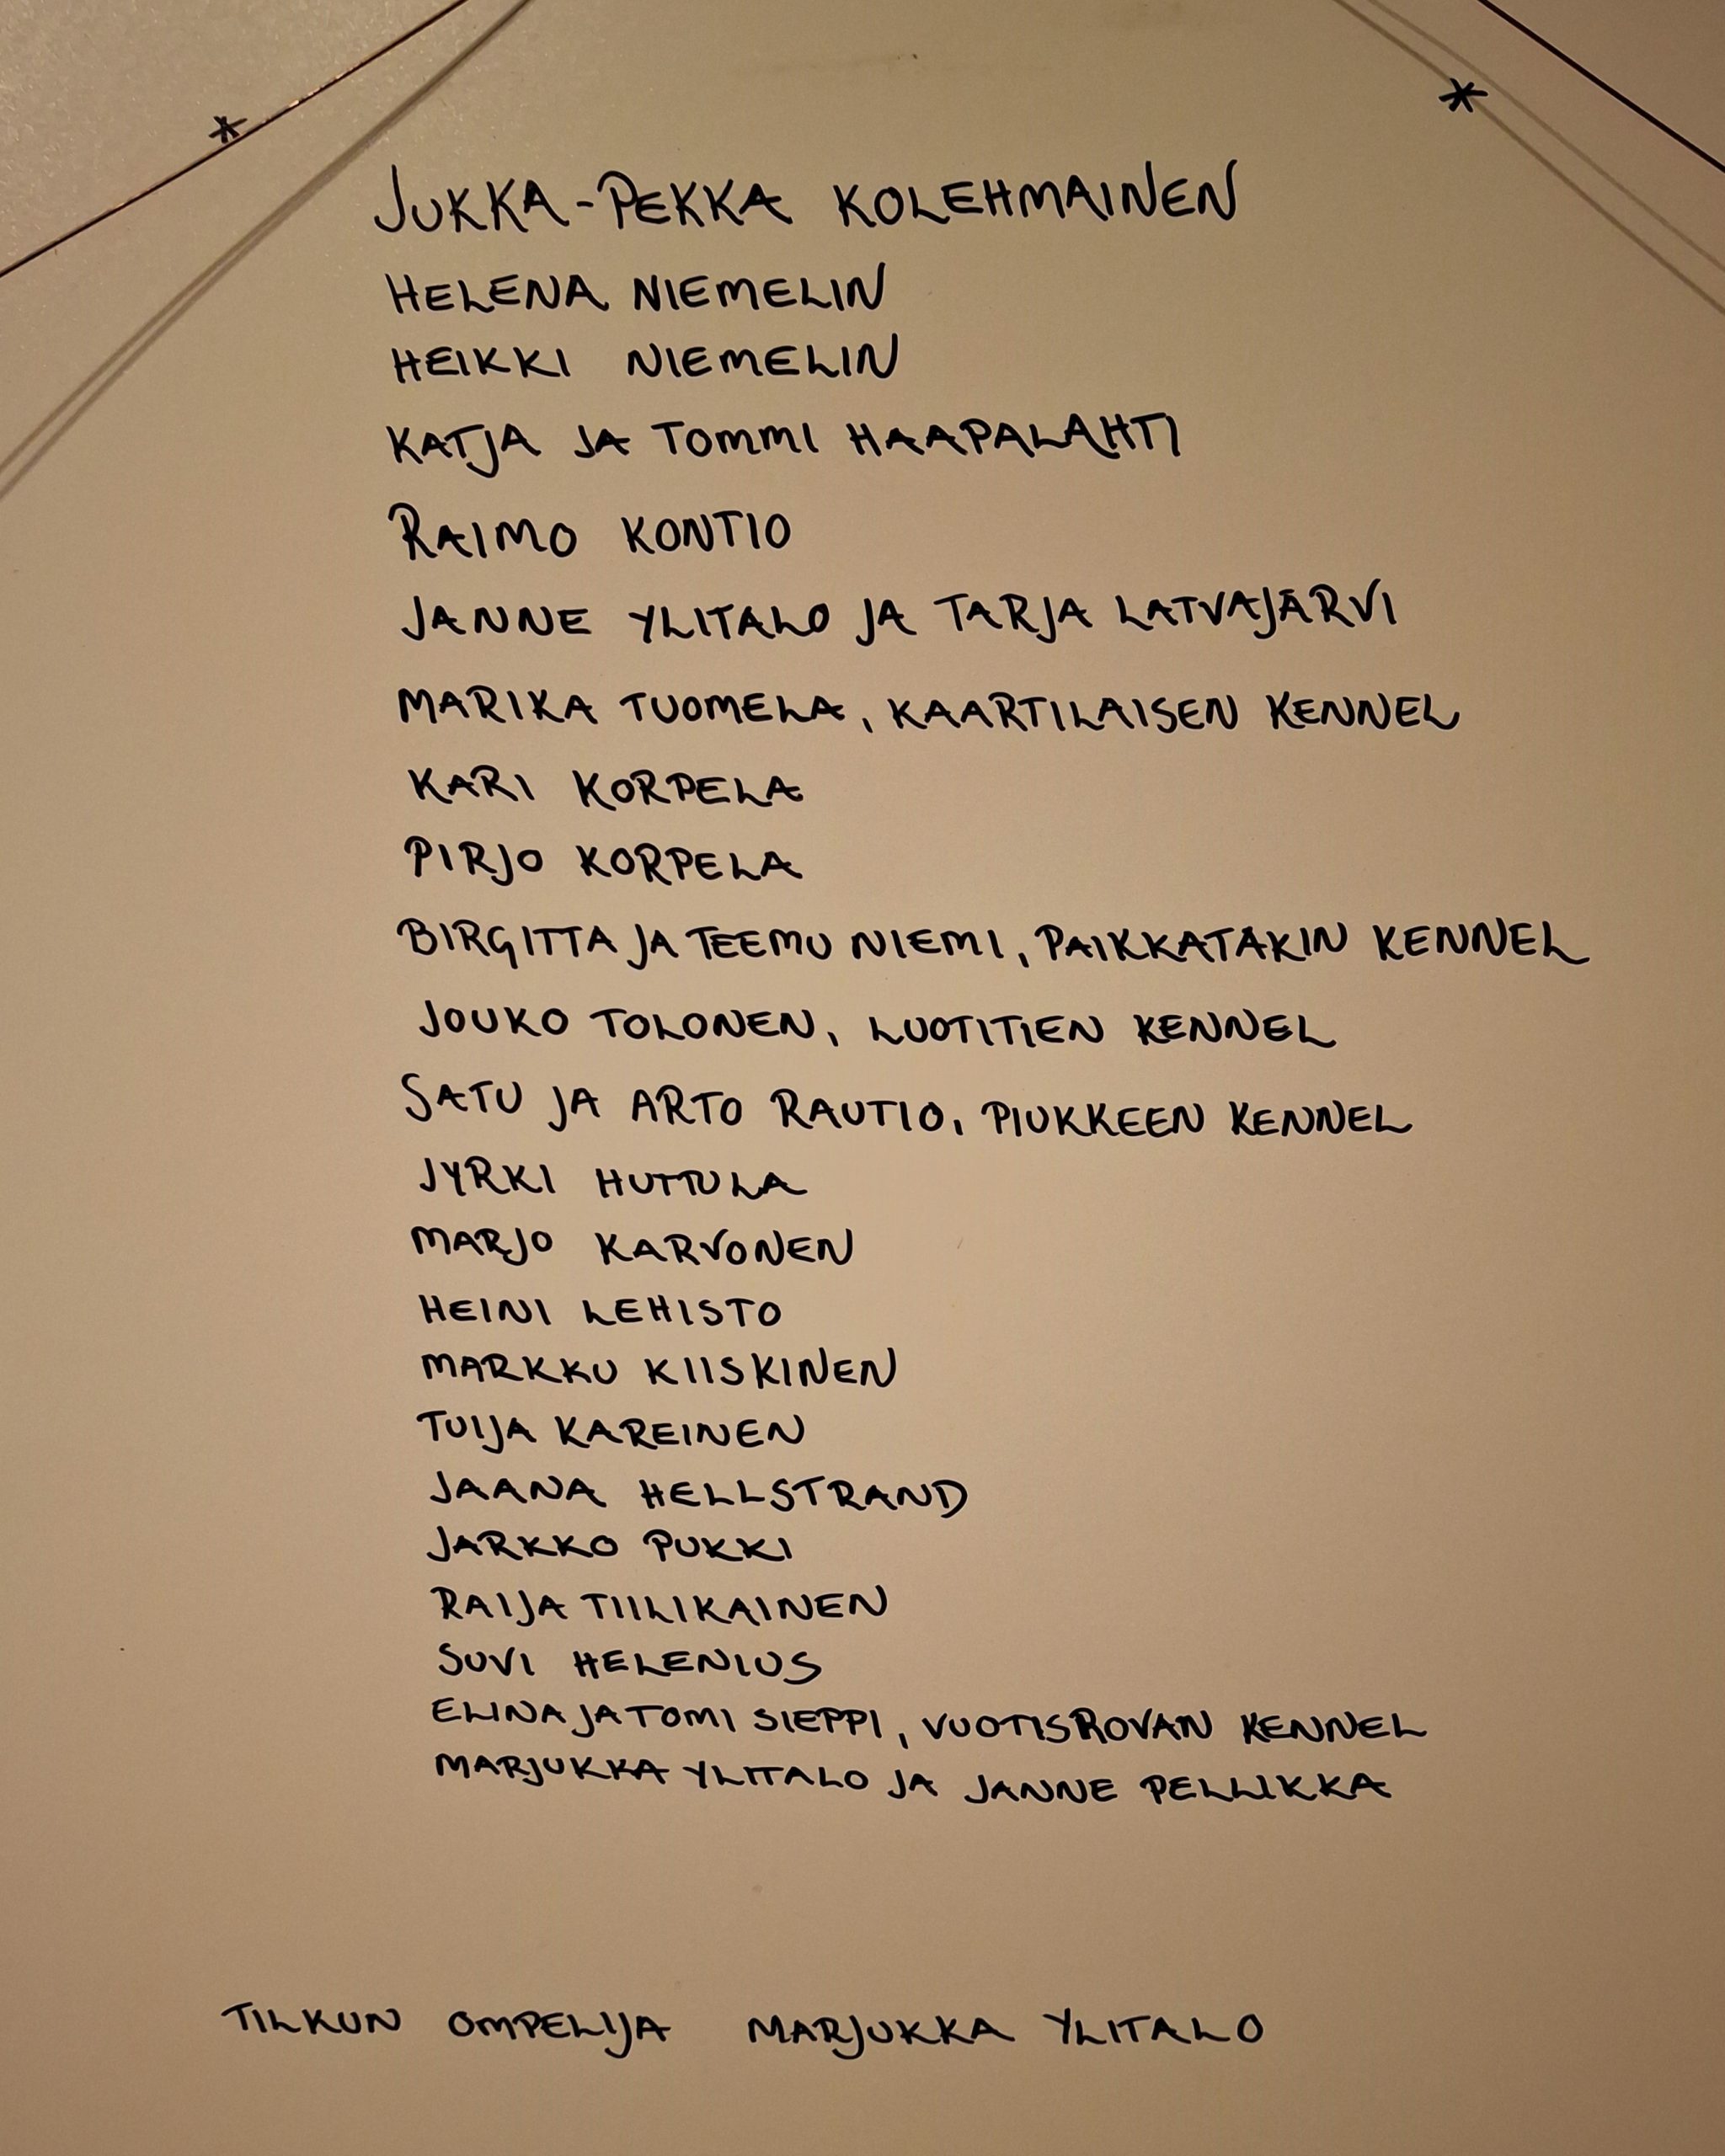 * *
JUKKA-PEKKA KOLEHMAINEN
HELENA NIEMELIN
HEIKKI NIEMELIN
KATJA JA TOMMI HAAPALAHTI
RAIMO KONTIO
JANNE YLITALO JA TARJA LATVAJÄRVI
MARIKA TUOMELA, KAARTILAISEN KENNEL
KARI KORPELA
PIRJO KORPELA
BIRGITTA JA TEEMU NIEMI, PAIKKATAKIN KENNEL
JOUKO TOLONEN, LUOTITIEN KENNEL
SATU JA ARTO RAUTIO, PIUKKEEN KENNEL
JYRKI HUTTULA
MARJO KARVONEN
HEINI LEHISTO
MARKKU KIISKINEN
TUIJA KAREINEN
JAANA HELLSTRAND
JARKKO PUKKI
RAIJA TIILIKAINEN
SUVI HELENIUS
ELINA JA TOMI SIEPPI, VUOTISROVAN KENNEL
MARJUKKA YLITALO JA JANNE PELLIKKA
TILKUN OMPELIJA MARJUKKA YLITALO